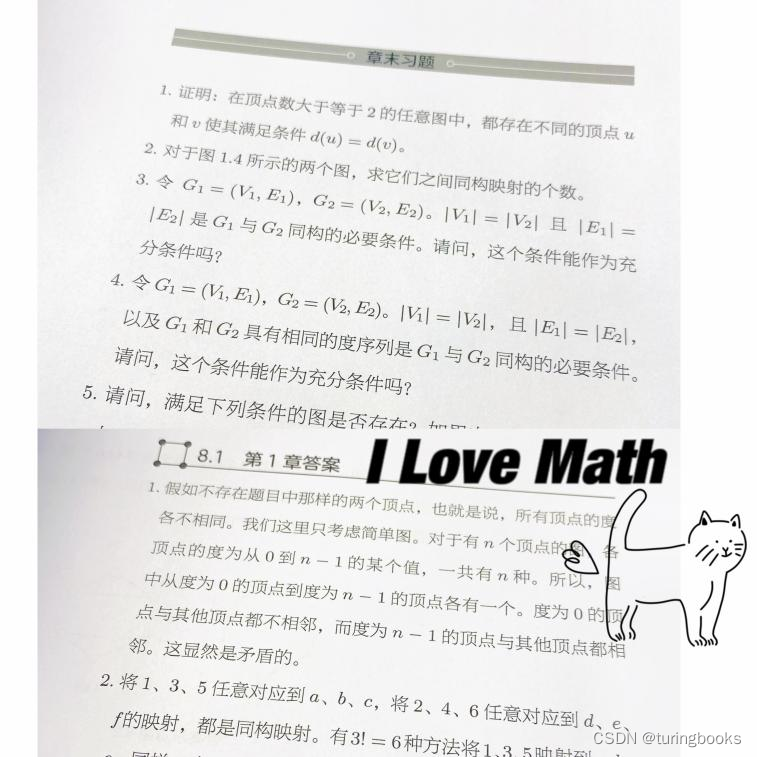 章末习题
1. 证明：在顶点数大于等于 2 的任意图中，都存在不同的顶点 u
和 v 使其满足条件 d(u) = d(v)。
2. 对于图 1.4 所示的两个图，求它们之间同构映射的个数。
3. 令 G₁ = (V₁, E₁)，G₂ = (V₂, E₂)。|V₁| = |V₂| 且 |E₁| =
|E₂| 是 G₁ 与 G₂ 同构的必要条件。请问，这个条件能作为充
分条件吗？
4. 令 G₁ = (V₁, E₁)，G₂ = (V₂, E₂)。|V₁| = |V₂|，且 |E₁| = |E₂|，
以及 G₁ 和 G₂ 具有相同的度序列是 G₁ 与 G₂ 同构的必要条件。
请问，这个条件能作为充分条件吗？
5. 请问，满足下列条件的图是否存在？
8.1 第 1 章答案
I Love Math
1. 假如不存在题目中那样的两个顶点，也就是说，所有顶点的度
各不相同。我们这里只考虑简单图。对于有 n 个顶点的图，各
顶点的度为从 0 到 n − 1 的某个值，一共有 n 种。所以，图
中从度为 0 的顶点到度为 n − 1 的顶点各有一个。度为 0 的顶
点与其他顶点都不相邻，而度为 n − 1 的顶点与其他顶点都相
邻。这显然是矛盾的。
2. 将 1、3、5 任意对应到 a、b、c，将 2、4、6 任意对应到 d、e、
f的映射，都是同构映射。有3! = 6种方法将1、3、5映射到
CSDN @turingbooks